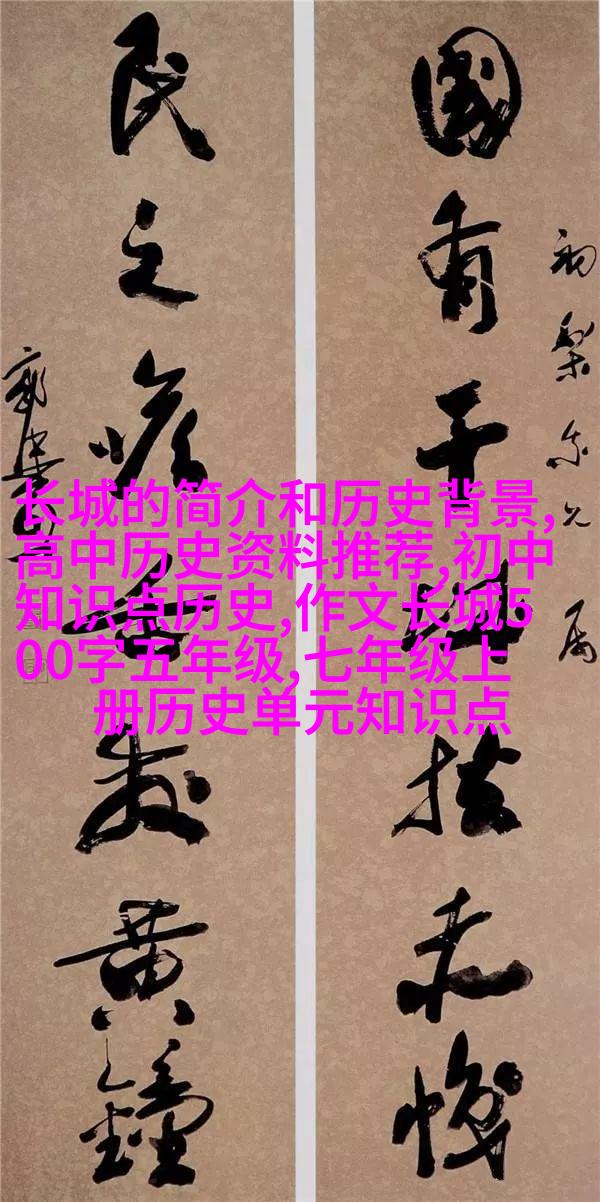 初梨
國有干城扶赤幟
民之喉舌發黃鐘
郭沫若
长城的简介和历史背景,
高中历史资料推荐,初中
知识点历史,作文长城5
00字五年级,七年级上
册历史单元知识点